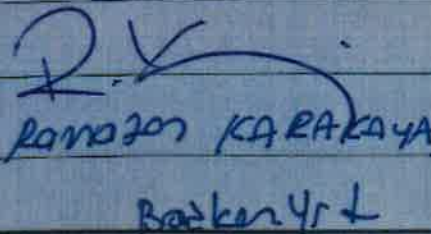 Ramazan KARAKAYA
Başkan Yrd.